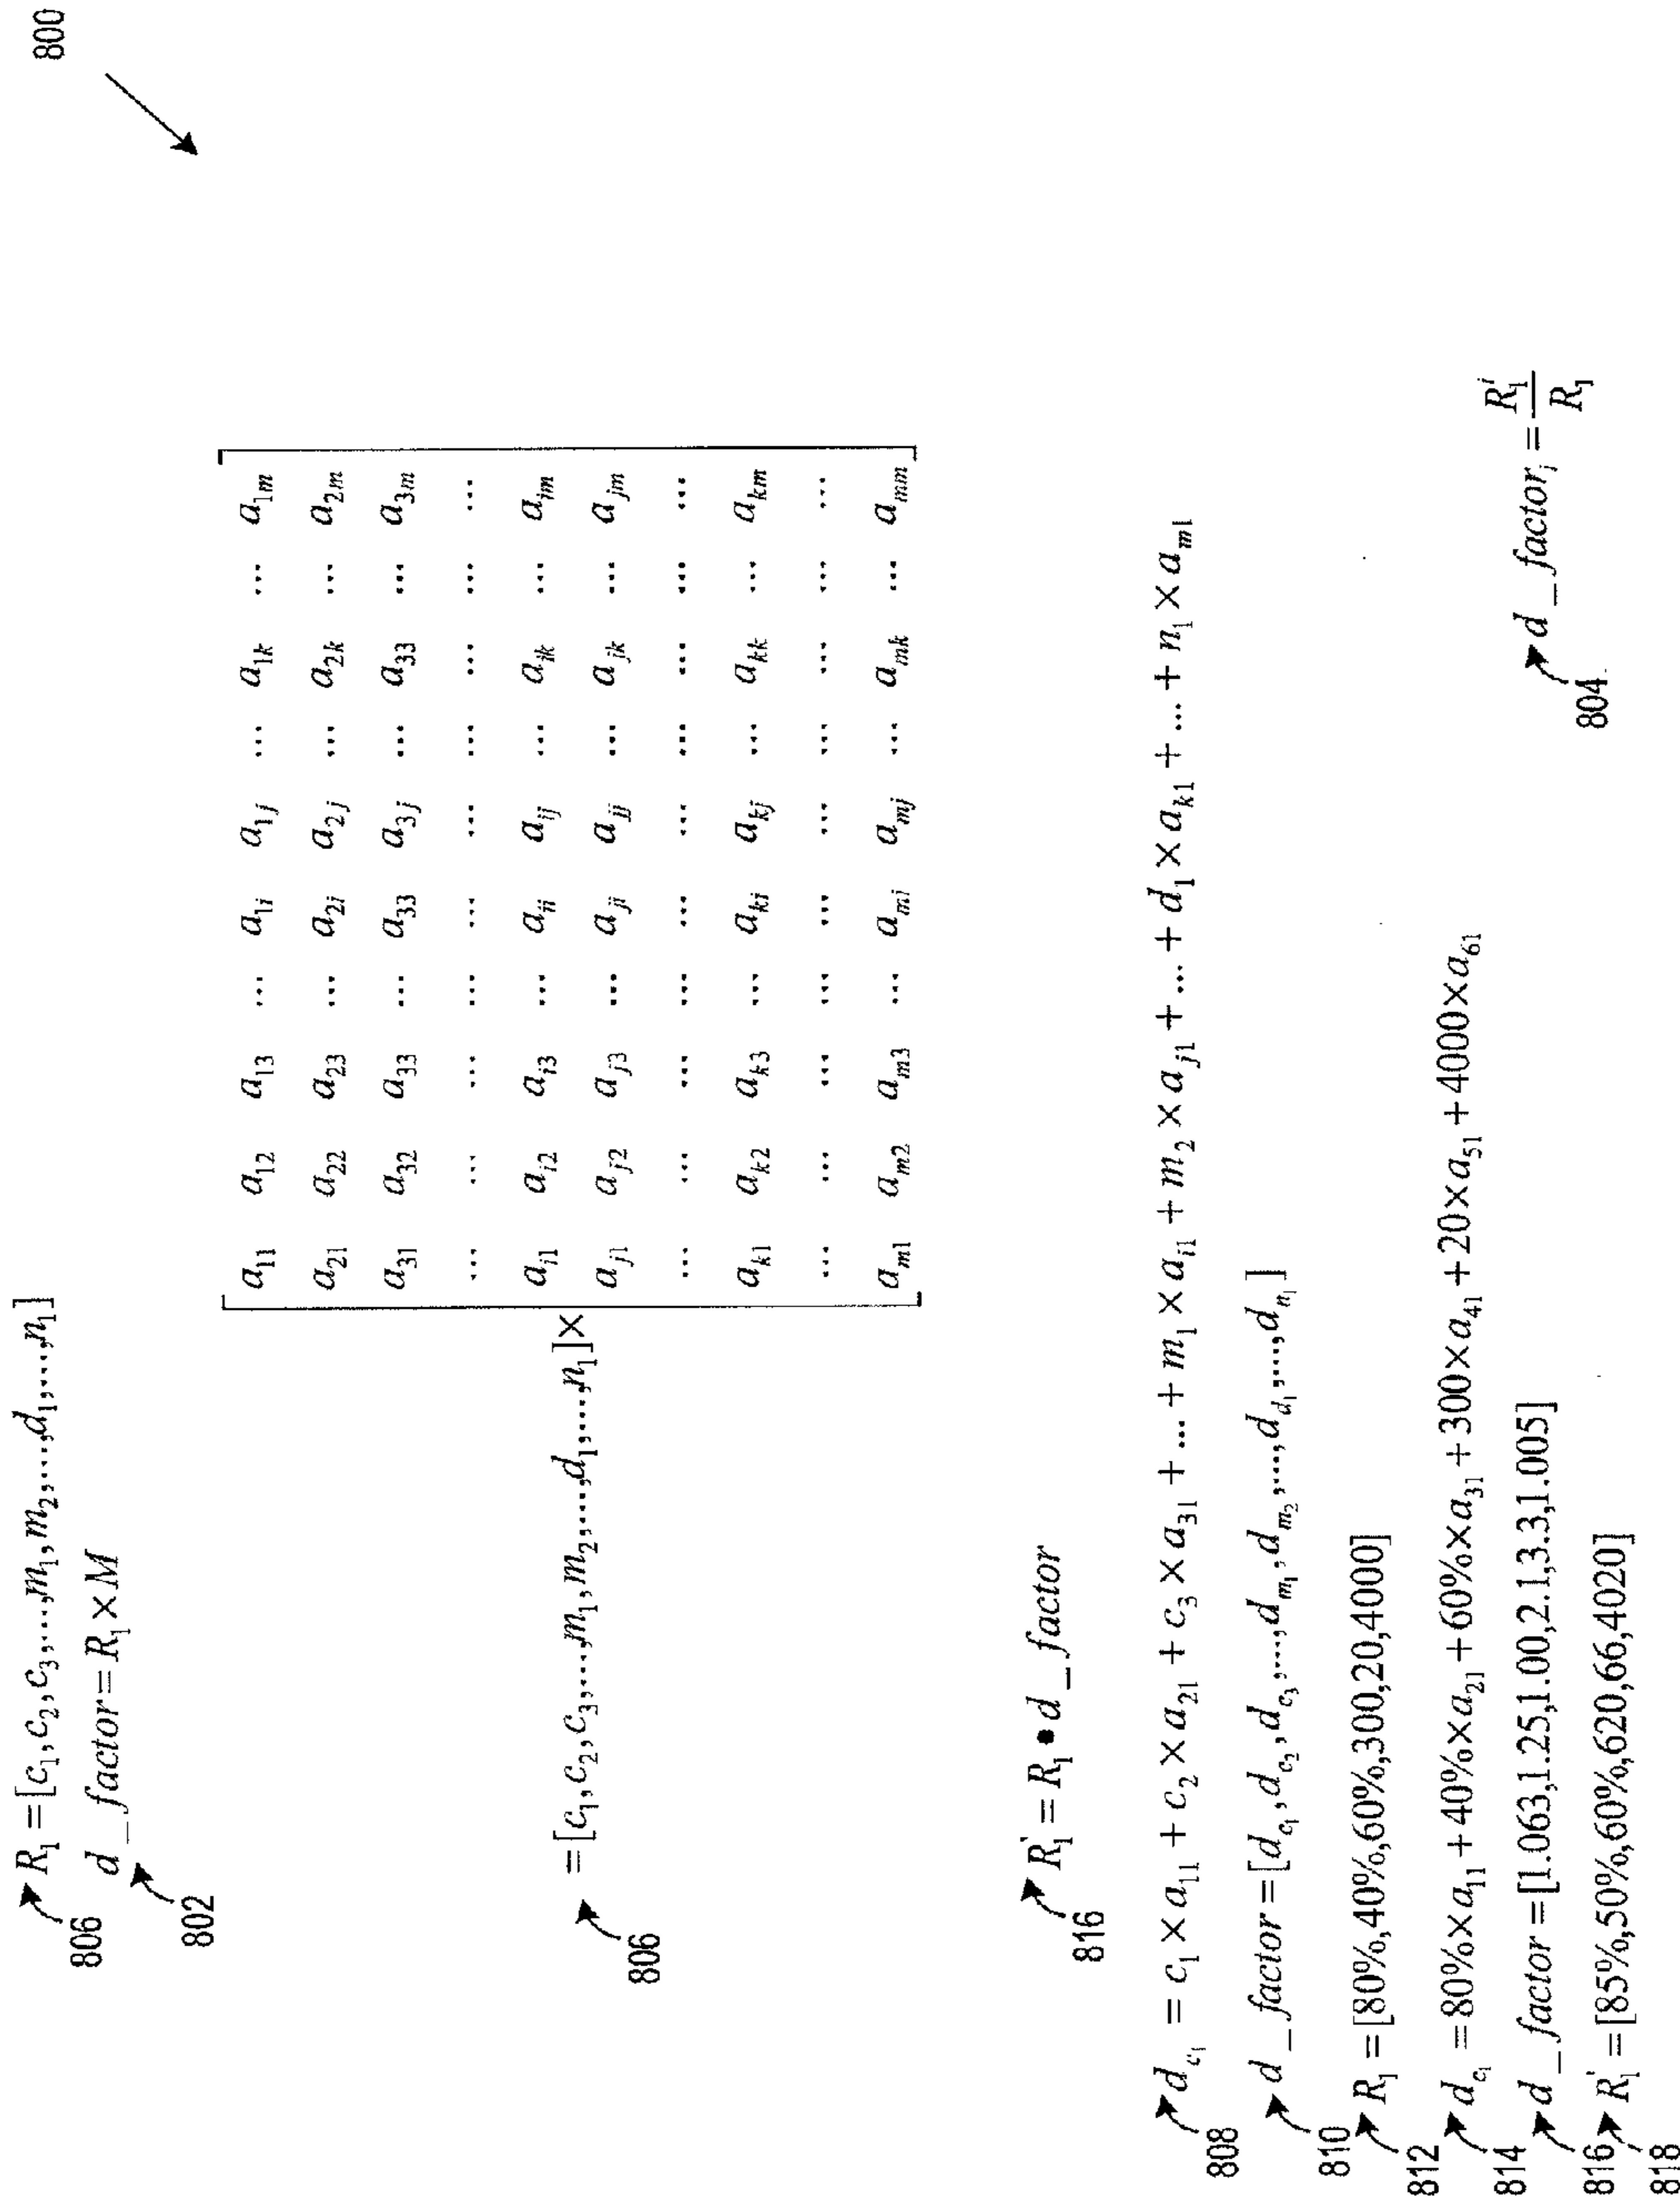 800
R₁ = [c₁,c₂,c₃,...,m₁,m₂,...,d₁,...,n₁]
806
d_factor = R₁ × M
802
a₁₁ a₁₂ a₁₃ ... a₁ᵢ a₁ⱼ ... a₁ₖ ... a₁ₘ
a₂₁ a₂₂ a₂₃ ... a₂ᵢ a₂ⱼ ... a₂ₖ ... a₂ₘ
a₃₁ a₃₂ a₃₃ ... a₃₃ a₃ⱼ ... a₃₃ ... a₃ₘ
... ... ... ... ... ... ... ... ... ...
aᵢ₁ aᵢ₂ aᵢ₃ ... aᵢᵢ aᵢⱼ ... aᵢₖ ... aᵢₘ
= [c₁,c₂,c₃,...,m₁,m₂,...,d₁,...,n₁] ×
806
aⱼ₁ aⱼ₂ aⱼ₃ ... aⱼᵢ aⱼⱼ ... aⱼₖ ... aⱼₘ
... ... ... ... ... ... ... ... ... ...
aₖ₁ aₖ₂ aₖ₃ ... aₖᵢ aₖⱼ ... aₖₖ ... aₖₘ
... ... ... ... ... ... ... ... ... ...
aₘ₁ aₘ₂ aₘ₃ ... aₘᵢ aₘⱼ ... aₘₖ ... aₘₘ
R₁' = R₁ • d_factor
816
d_c₁ = c₁ × a₁₁ + c₂ × a₂₁ + c₃ × a₃₁ + ... + m₁ × aᵢ₁ + m₂ × aⱼ₁ + ... + d₁ × aₖ₁ + ... + n₁ × aₘ₁
808
d_factor = [d_c₁,d_c₂,d_c₃,...,d_m₁,d_m₂,...,d_d₁,...,d_n₁]
810
R₁ = [80%,40%,60%,300,20,4000]
812
d_c₁ = 80%×a₁₁ + 40%×a₂₁ + 60%×a₃₁ + 300×a₄₁ + 20×a₅₁ + 4000×a₆₁
814
d_factor = [1.063,1.25,1.00,2.1,3.3,1.005]
816
d_factorᵢ = R₁ⁱ / R₁
804
R₁' = [85%,50%,60%,620,66,4020]
818